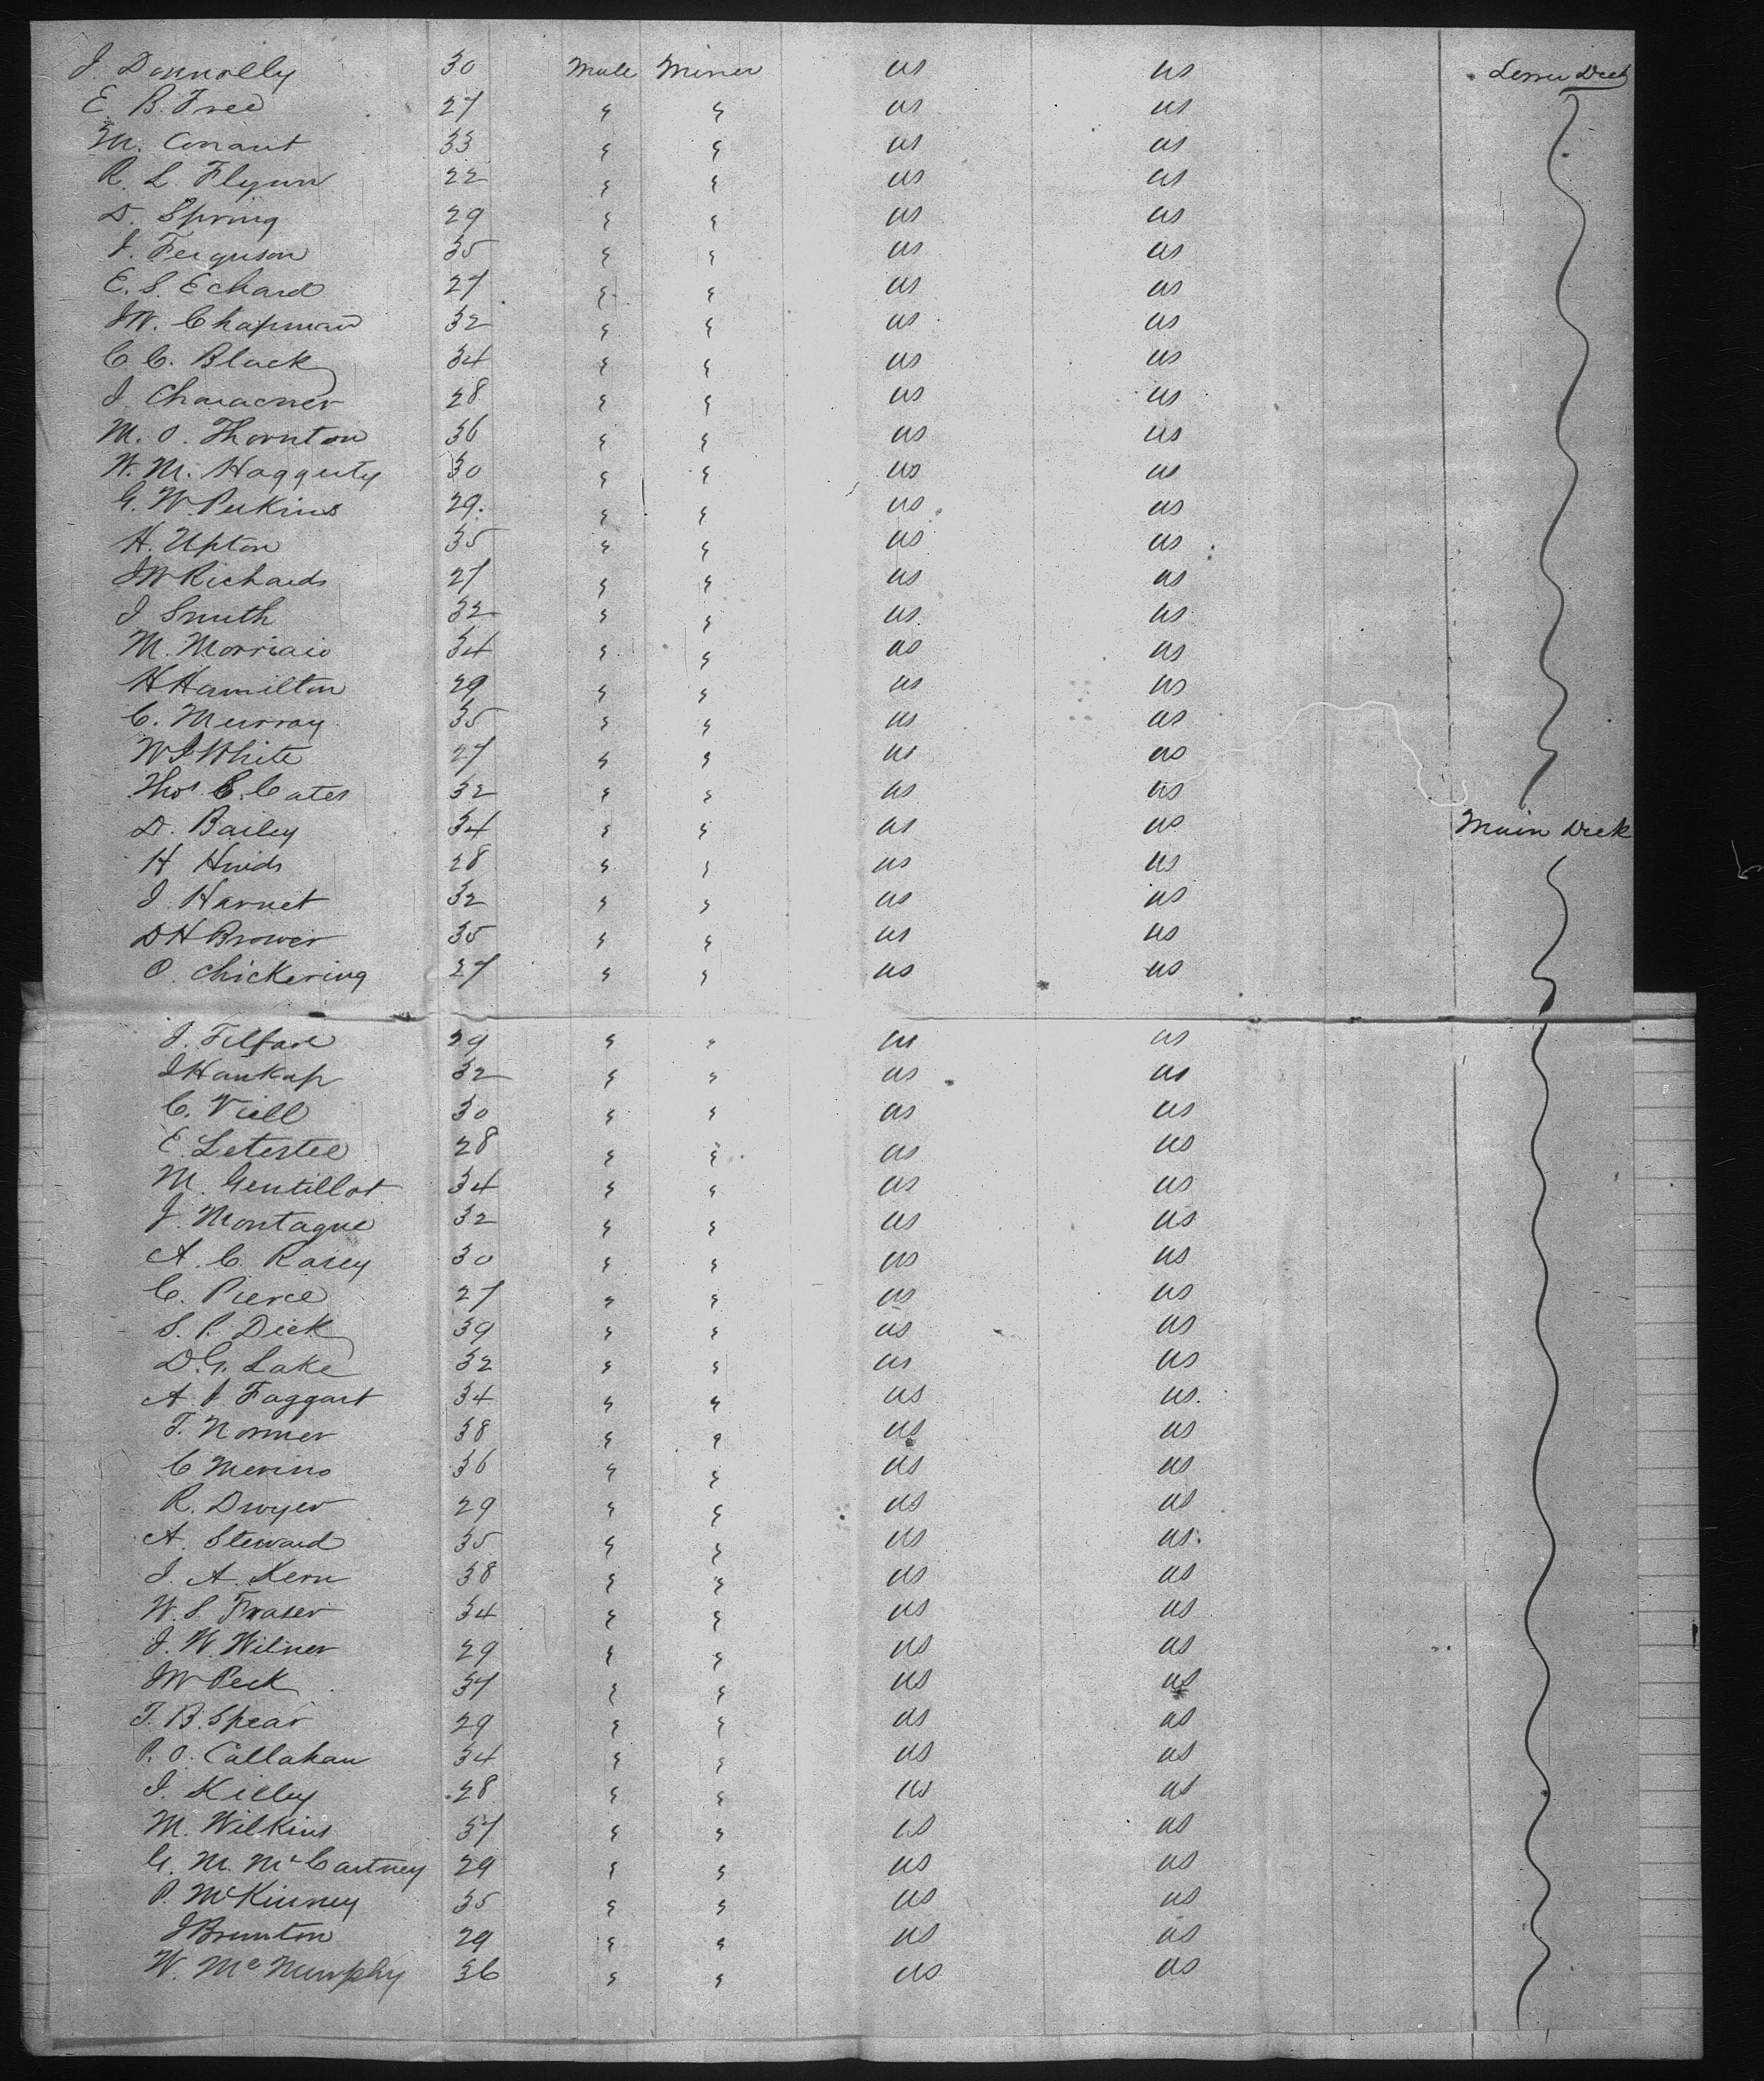 J. Donnolly 30 Male Miner US US Lower Deck
E B. Free 27 " " US US
M. Conant 33 " " US US
R. L. Flynn 22 " " US US
D. Spring 29 " " US US
J. Ferguson 35 " " US US
E. S. Echard 27 " " US US
J W. Chapman 32 " " US US
C C. Black 34 " " US US
J. 28 " " US US
M. O. Thornton 36 " " US US
W. M. Haggerty 30 " " US US
G. W Perkins 29. " " US US
H. Upton 35 " " US US
J W Richards 27 " " US US
J Smith 32 " " US US
M. 34 " " US US
H Hamilton 29 " " US US
C. Murray 35 " " US US
W J White 27 " " US US
Thos C. Cates 32 " " US US
D. Bailey 34 " " US US Main Deck
H Hinds 28 " " US US
J Harnet 32 " " US US
D H Brower 35 " " US US
O. Chickering 27 " " US US
J. 29 " " US US
J 32 " " US US
C. Viell 30 " " US US
E. Letestee 28 " " US US
M. Gentillot 34 " " US US
J. Montague 32 " " US US
A. C. Rasey 30 " " US US
C. Pierce 27 " " US US
S. P. Dick 39 " " US US
D. G. Lake 32 " " US US
A. J Faggart 34 " " US US.
T. Normer 38 " " US US
C Merino 36 " " US US
R. Dwyer 29 " " US US
A. Steward 35 " " US US.
J. A. Kern 38 " " US US
W. S. Fraser 34 " " US US
J. W. Wilner 29 " " US US
J W Peck 37 " " US US
T. B. Spear 29 " " US US
P. O. Callahan 34 " " US US
J. Kelley 28 " " US US
M. Wilkins 37 " " US US
G. M. McCartney 29 " " US US
P. McKinney 35 " " US US
J Brunton 29 " " US US
W. Mc Murphy 36 " " US US